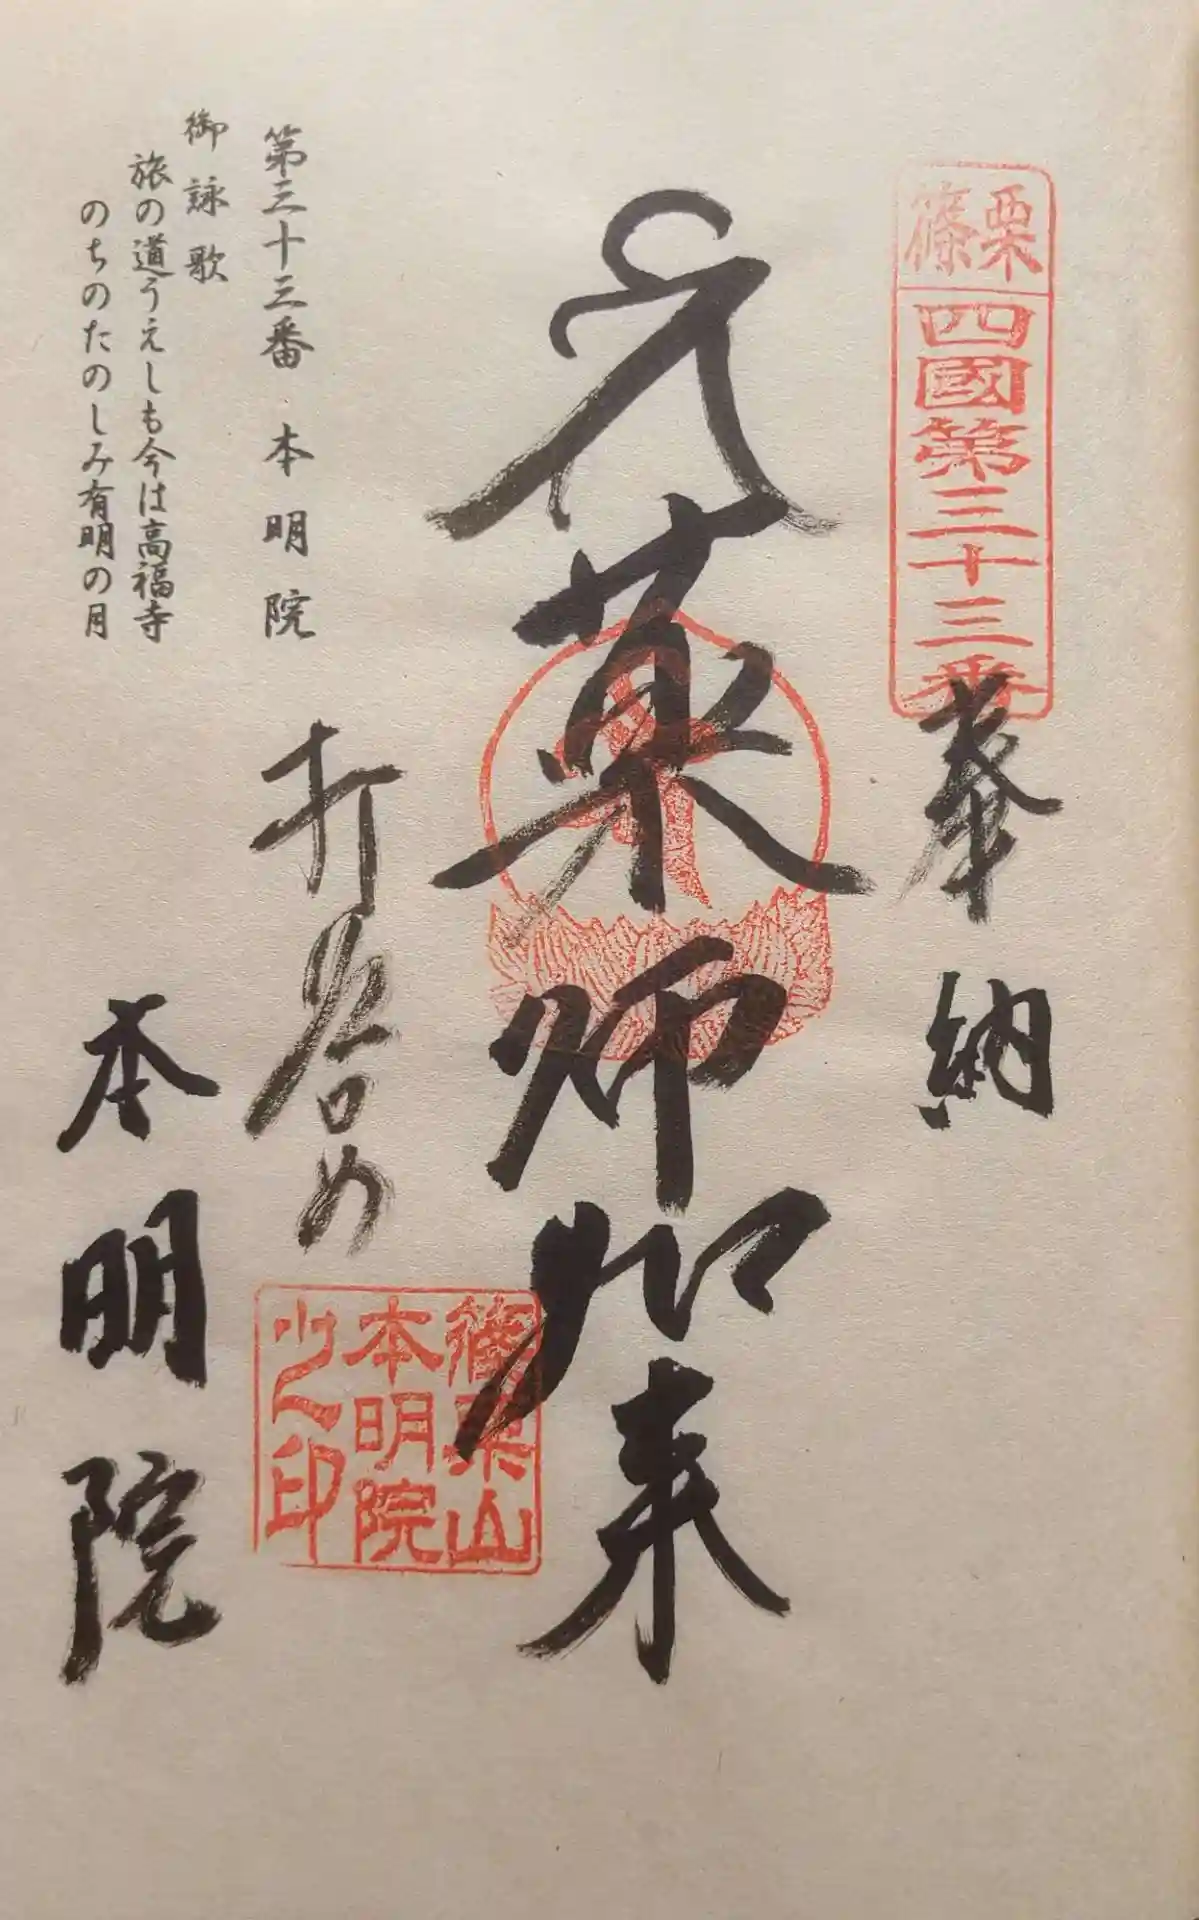 篠栗
四國第三十三番
奉納
薬師如来
打留め
篠栗山
本明院
之印
本明院
第三十三番 本明院
御詠歌
旅の道うえしも今は高福寺
のちのたのしみ有明の月